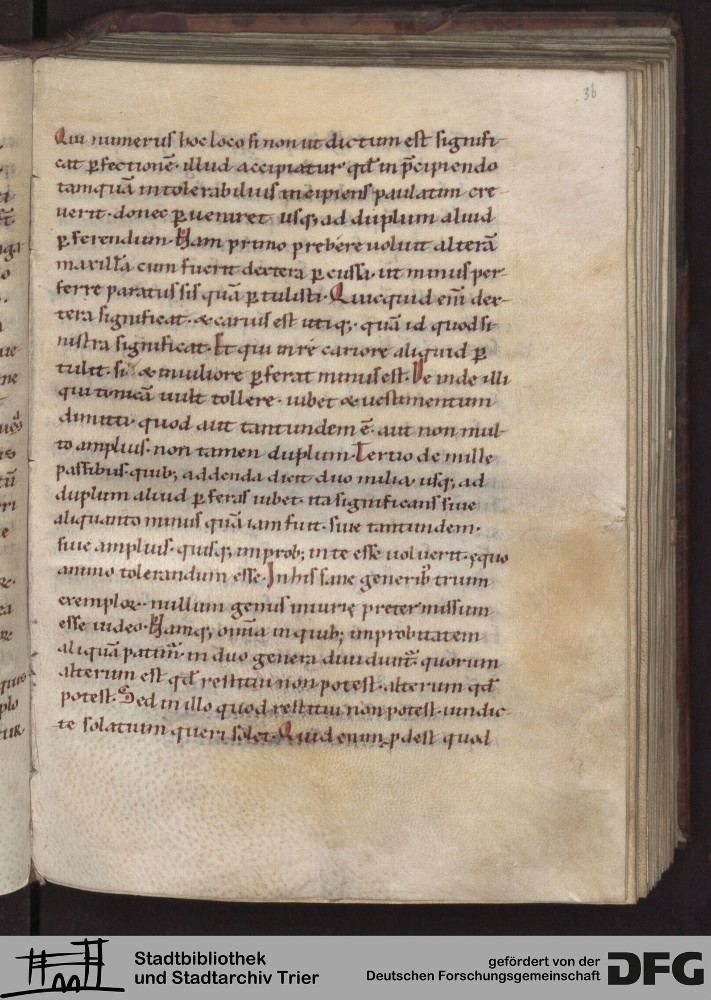 36
Qui numerus hoc loco si non ut dictum est signifi
cat ꝑfectionē· illud accipiatur qđ in p̄cipiendo
tamquā intolerabilius incipiens paulatim cre
verit· donec ꝑveniret usq; ad duplum aliud
ꝑferendum· Nam primo prebere voluit alterā
maxillā cum fuerit dextera ꝑcussa· ut minus per
ferre paratus sis quā ꝑtulisti· Quicquid eni͂ dex
tera significat· & carius est utiq; quā id quod si
nistra significat· Et qui in re cariore aliquid ꝑ
tulit· si & in viliore ꝑferat minus est· De inde illi
qui tonicā vult tollere· iubet & vestimentum
dimitti· quod aut tantundem ē· aut non mul
to amplius· non tamen duplum· Tertio de mille
passibus· quib; addenda dicit duo milia· usq; ad
duplum aliud ꝑferas iubet· ita significans sive
aliquanto minus quā iam fuit· sive tantundem·
sive amplius· quisq; improb; in te esse voluerit· ęquo
animo tolerandum esse· In his sane generib; trium
exemploꝝ· nullum genus iniurię pretermissum
esse video· Namq; om̄ia in quib; improbitatem
aliquā patim͂· in duo genera dividunt͂· quorum
alterum est qđ restitui non potest· alterum qđ
potest· Sed in illo quod restitui non potest· vindic
te solatium queri solet· Quid enim ꝓdest quod
Stadtbibliothek
und Stadtarchiv Trier
gefördert von der
Deutschen Forschungsgemeinschaft
DFG